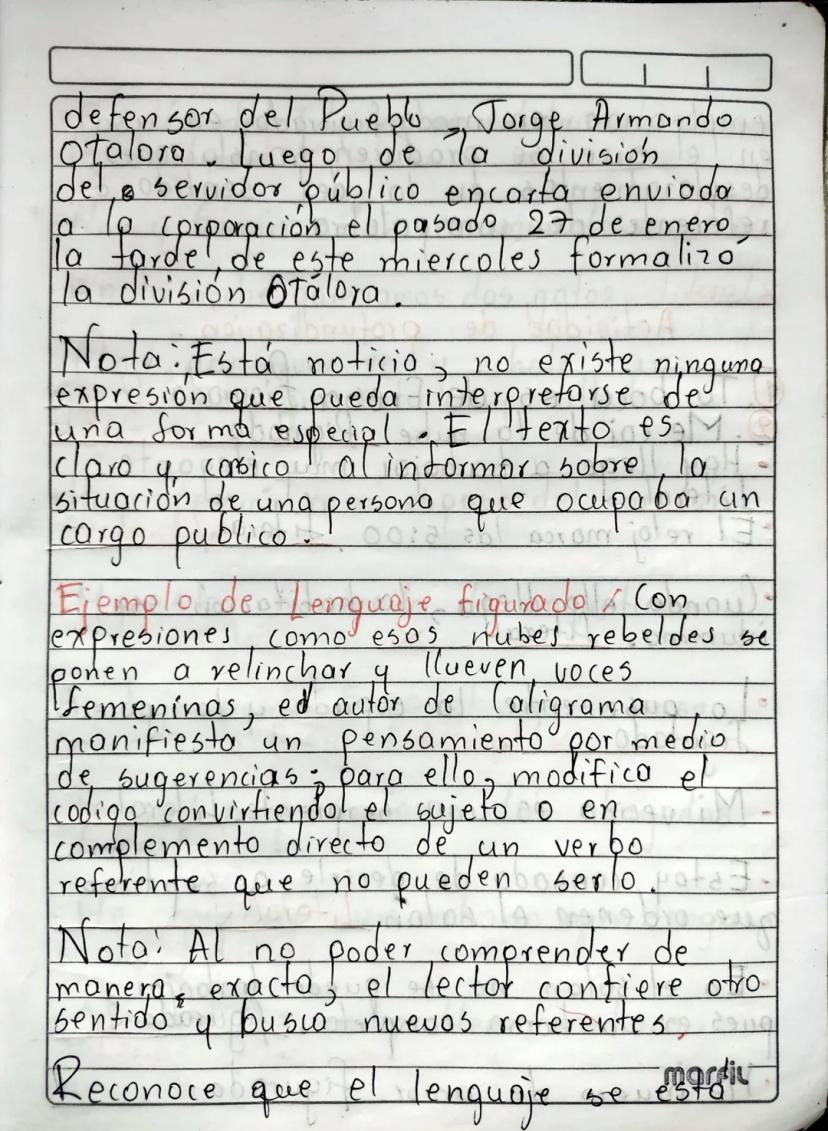 defensor del Pueblo, Jorge Armando
Otalora. Luego de la división
del servidor público encarta enviada
a la corporación el pasado 27 de enero,
la tarde de este miercoles formalizó
la división Otálora.
Nota: Está noticia, no existe ninguna
expresión que pueda interpretarse de
una forma especial. El texto es
claro y consico al informar sobre la
situación de una persona que ocupaba un
cargo publico.
Ejemplo de Lenguaje figurado / Con
expresiones como esas nubes rebeldes se
ponen a relinchar y llueven voces
femeninas, el autor de Caligrama
manifiesta un pensamiento por medio
de sugerencias; para ello, modifica el
codigo convirtiendo el sujeto o en
complemento directo de un verbo
referente que no pueden serlo.
Nota: Al no poder comprender de
manera exacta, el lector confiere otro
sentido y busca nuevos referentes,
Reconoce que el lenguaje se está
marfil